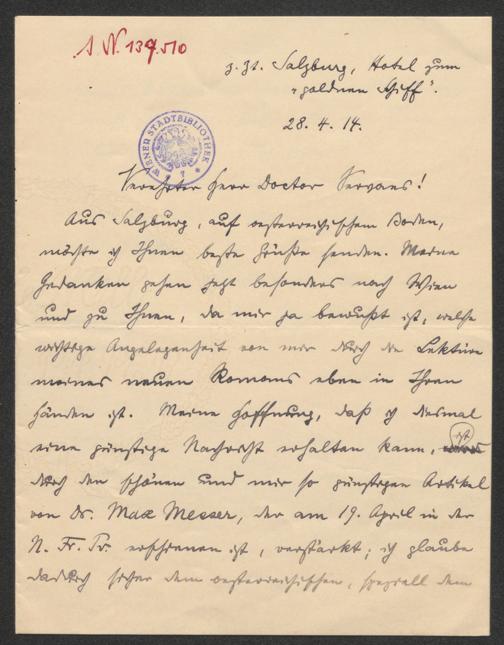 I. N. 139.510
z. Zt. Salzburg, Hotel zum
"goldnen Schiff".
28. 4. 14.
WIENER STADTBIBLIOTHEK
Verehrter Herr Doctor Servaes!
Aus Salzburg, auf oesterreichischem Boden,
möchte ich Ihnen beste Grüße senden. Meine
Gedanken gehen jetzt besonders nach Wien
und zu Ihnen, da mir ja bewußt ist, welche
wichtige Angelegenheit von mir durch die Lektüre
meines neuen Romans eben in Ihren
Händen ist. Meine Hoffnung, daß ich diesmal
eine günstige Nachricht erhalten kann, ist
durch den schönen und mir so günstigen Artikel
von Dr. Max Messer, der am 19. April in der
N. Fr. Pr. erschienen ist, verstärkt; ich glaube
dadurch sicher dem oesterreichischen, speziell dem